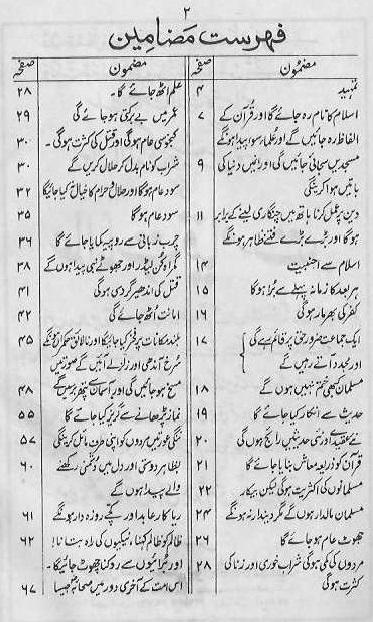 ۲
فہرست مضامین
مضمون صفحہ
تمہید ۴
اسلام کا نام رہ جائے گا اور قرآن کے ۷
الفاظ رہ جائیں گے اور علماء سوء پیدا ہونگے
مسجدیں سجائی جائیں گی اور انمیں دنیا کی ۹
باتیں ہوا کرینگی
دین پر عمل کرنا ہاتھ میں چنگاری لینے کے برابر ۱۱
ہوگا اور بڑے بڑے فتنے ظاہر ہونگے
اسلام سے اجنبیت ۱۴
ہر بعد کا زمانہ پہلے سے بُرا ہوگا ۱۵
کفر کی بھرمار ہوگی ۱۶
ایک جماعت ضرور حق پر قائم رہے گی ۱۷
اور مجدد آتے رہیں گے
مسلمان کبھی ختم نہیں ہوں گے ۱۸
حدیث سے انکار کیا جائے گا ۱۹
نئے عقیدے اور نئی حدیثیں رائج ہوں گی ۲۰
قرآن کو ذریعہ معاش بنایا جائے گا ۲۱
مسلمانوں کی اکثریت ہوگی لیکن بیکار ۲۲
مسلمان مالدار ہوں گے مگر دیندار نہ ہونگے ۲۴
جھوٹ عام ہو جائے گا ۲۶
مردوں کی کمی ہوگی شراب خوری اور زنا کی ۲۸
کثرت ہوگی
مضمون صفحہ
علم اٹھ جائے گا۔ ۲۸
عمر میں بے برکتی ہو جائے گی ۲۹
کنجوسی عام ہوگی اور قتل کی کثرت ہوگی۔ ۳۰
شراب کو نام بدل کر حلال کریں گے ۳۰
سود عام ہوگا اور حلال حرام کا خیال نہ کیا جائیگا ۳۲
سود عام ہوگا ۳۵
چرب زبانی سے روپیہ کمایا جائے گا ۳۶
گمراہ کُن لیڈر اور جھوٹے نبی پیدا ہوں گے ۳۸
قتل کی اندھیر گردی ہوگی ۴۱
امانت اُٹھ جائے گی ۴۲
بلند مکانات پر فخر کیا جائیگا اور نالائق حکمران ہونگے ۴۵
سُرخ آندھی اور زلزلے آئیں گے صورتیں
مسخ ہو جائیں گی اور آسمان سے پتھر برسیں گے ۴۸
نماز پڑھانے سے گریز کیا جائے گا ۵۵
ننگی عورتیں مردوں کو اپنی طرف مائل کرینگی ۵۷
بظاہر دوستی اور دل میں دشمنی رکھنے ۶۰
والے پیدا ہوں گے
ریاکار عابد اور کچے روزہ دار ہونگے ۶۱
ظالم کو ظالم کہنا، نیکیوں کی راہ بتانا! ۶۲
اور بُرائیوں سے روکنا چھوٹ جائیگا۔
اس امت کے آخری دور میں صحابہؓ جیسا ۶۷